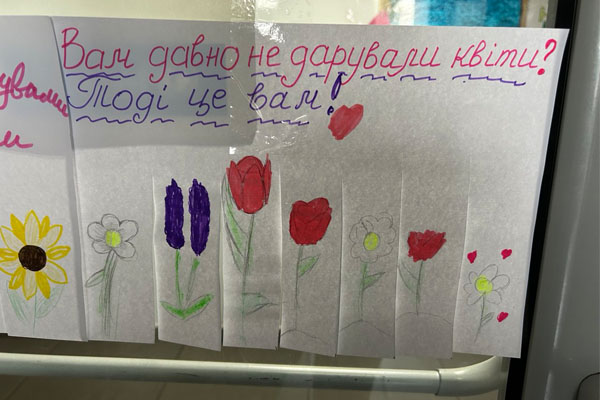 Вам давно не дарували квіти?
Тоді це вам!